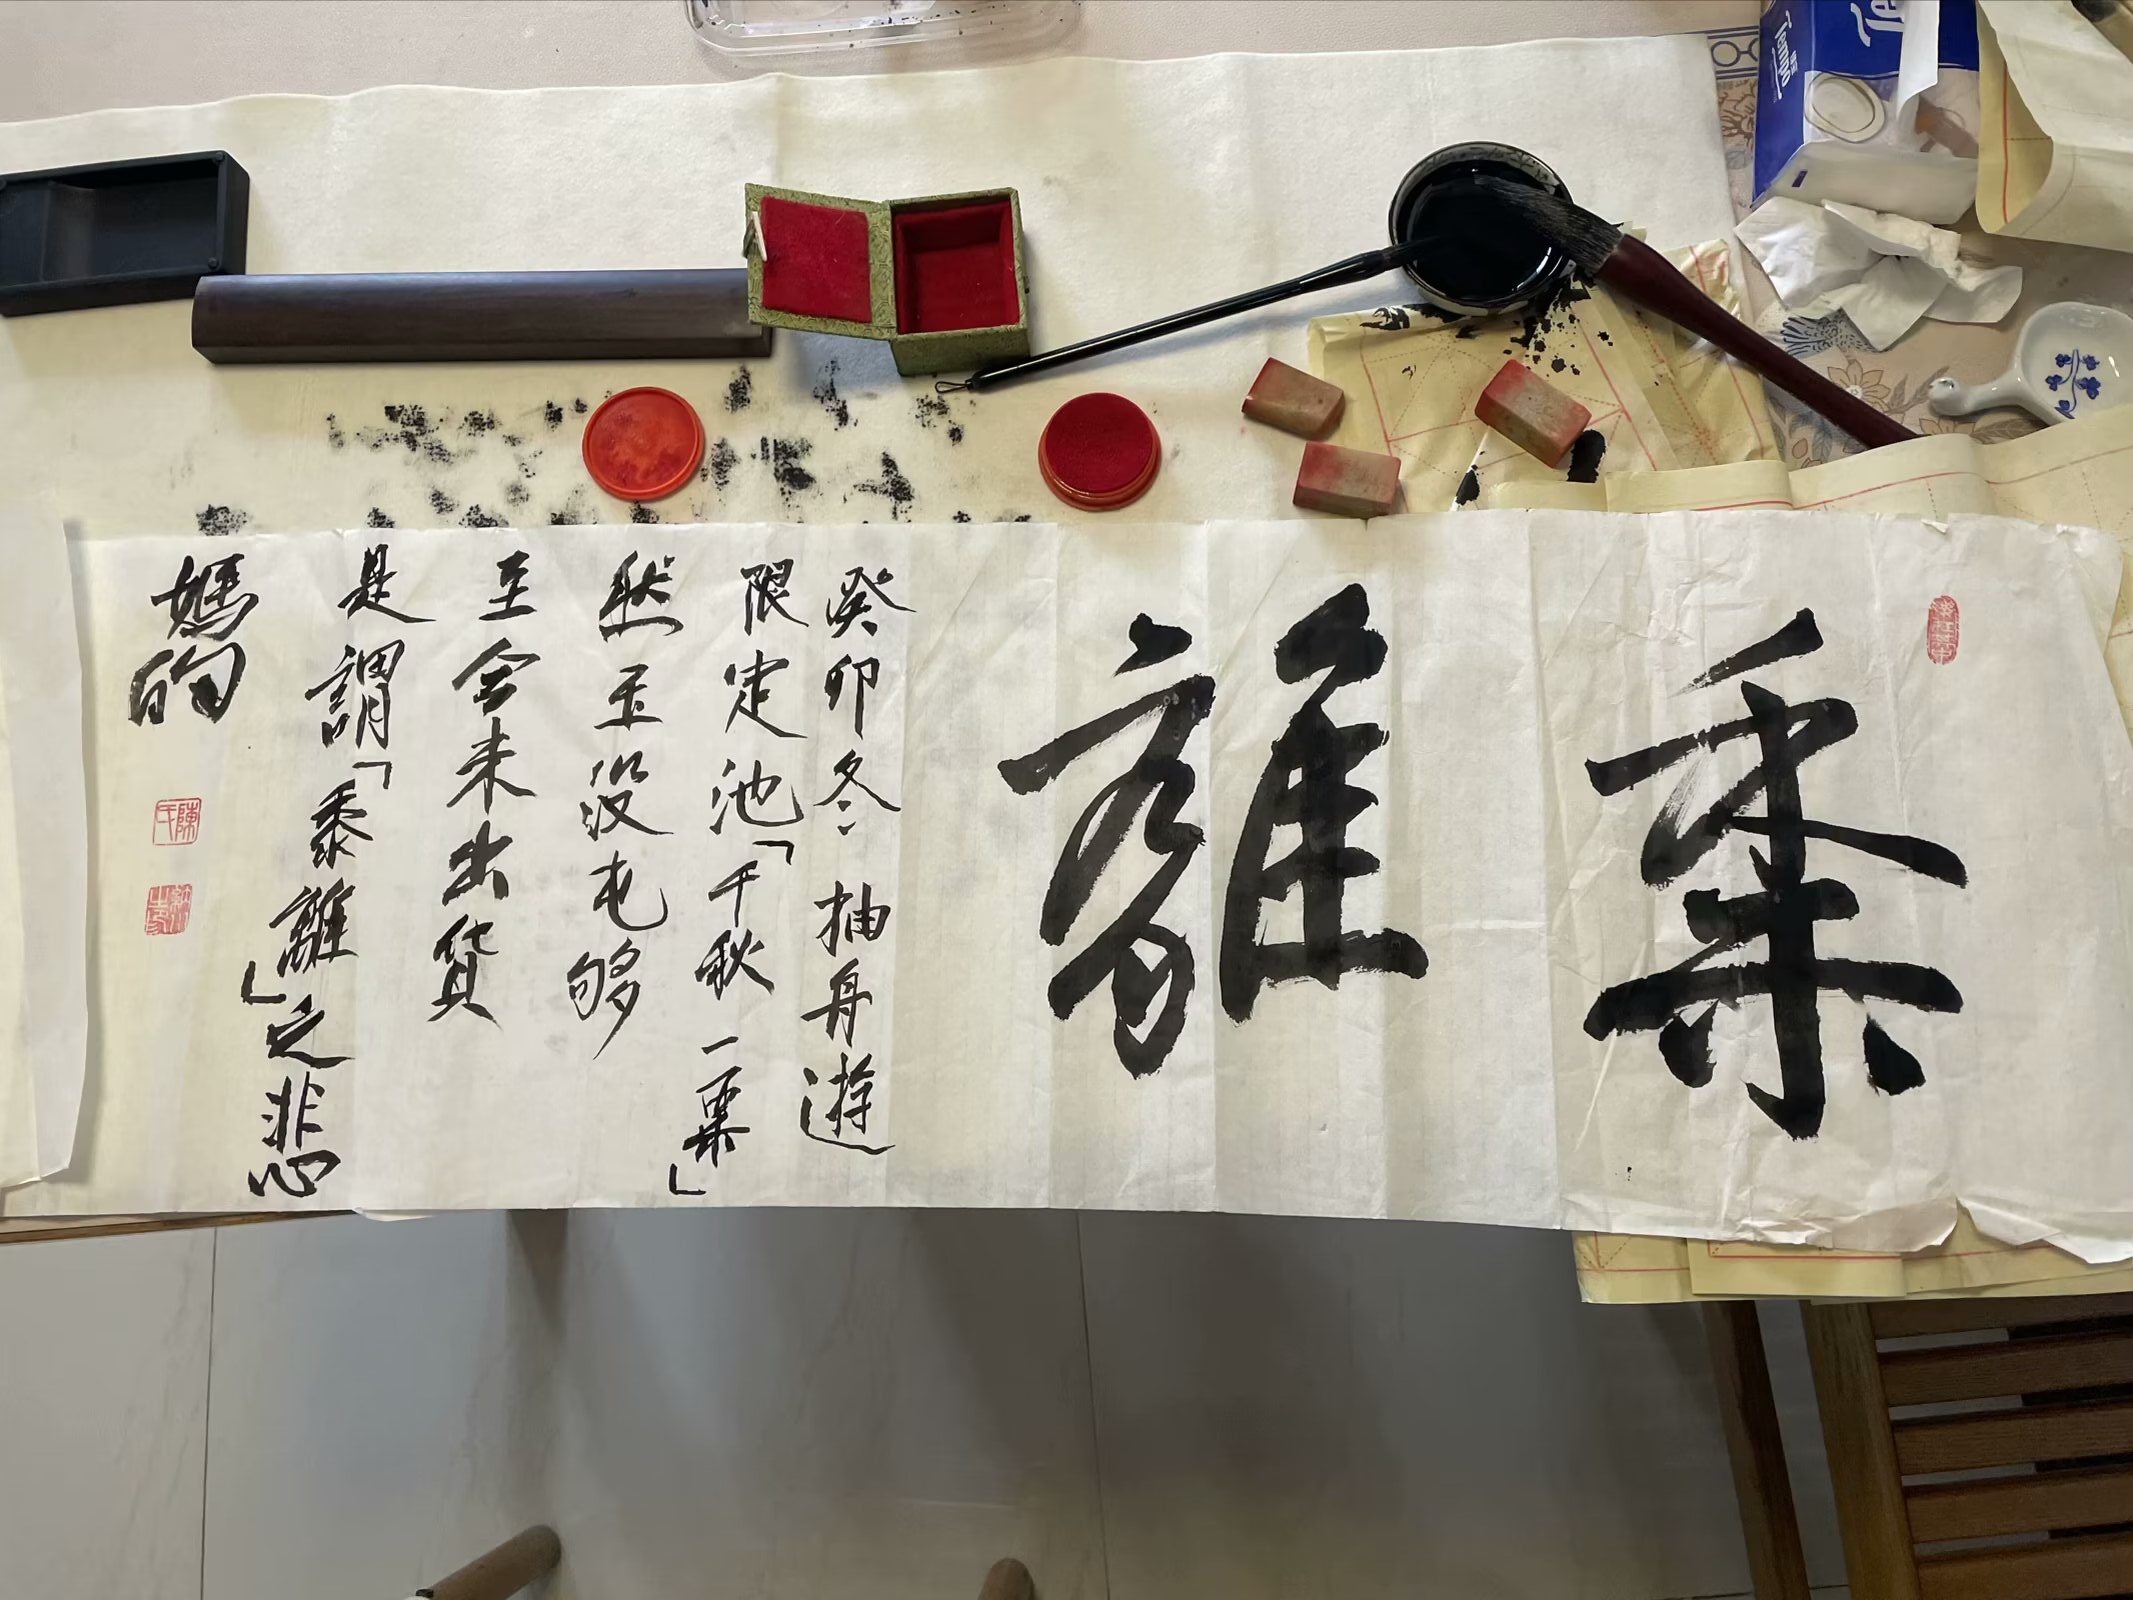 黍離
癸卯冬抽舟遊
限定池「千秋一粟」
然玉没屯够
至今未出貨
是謂「黍離」之悲
媽的
陳氏
Tempo